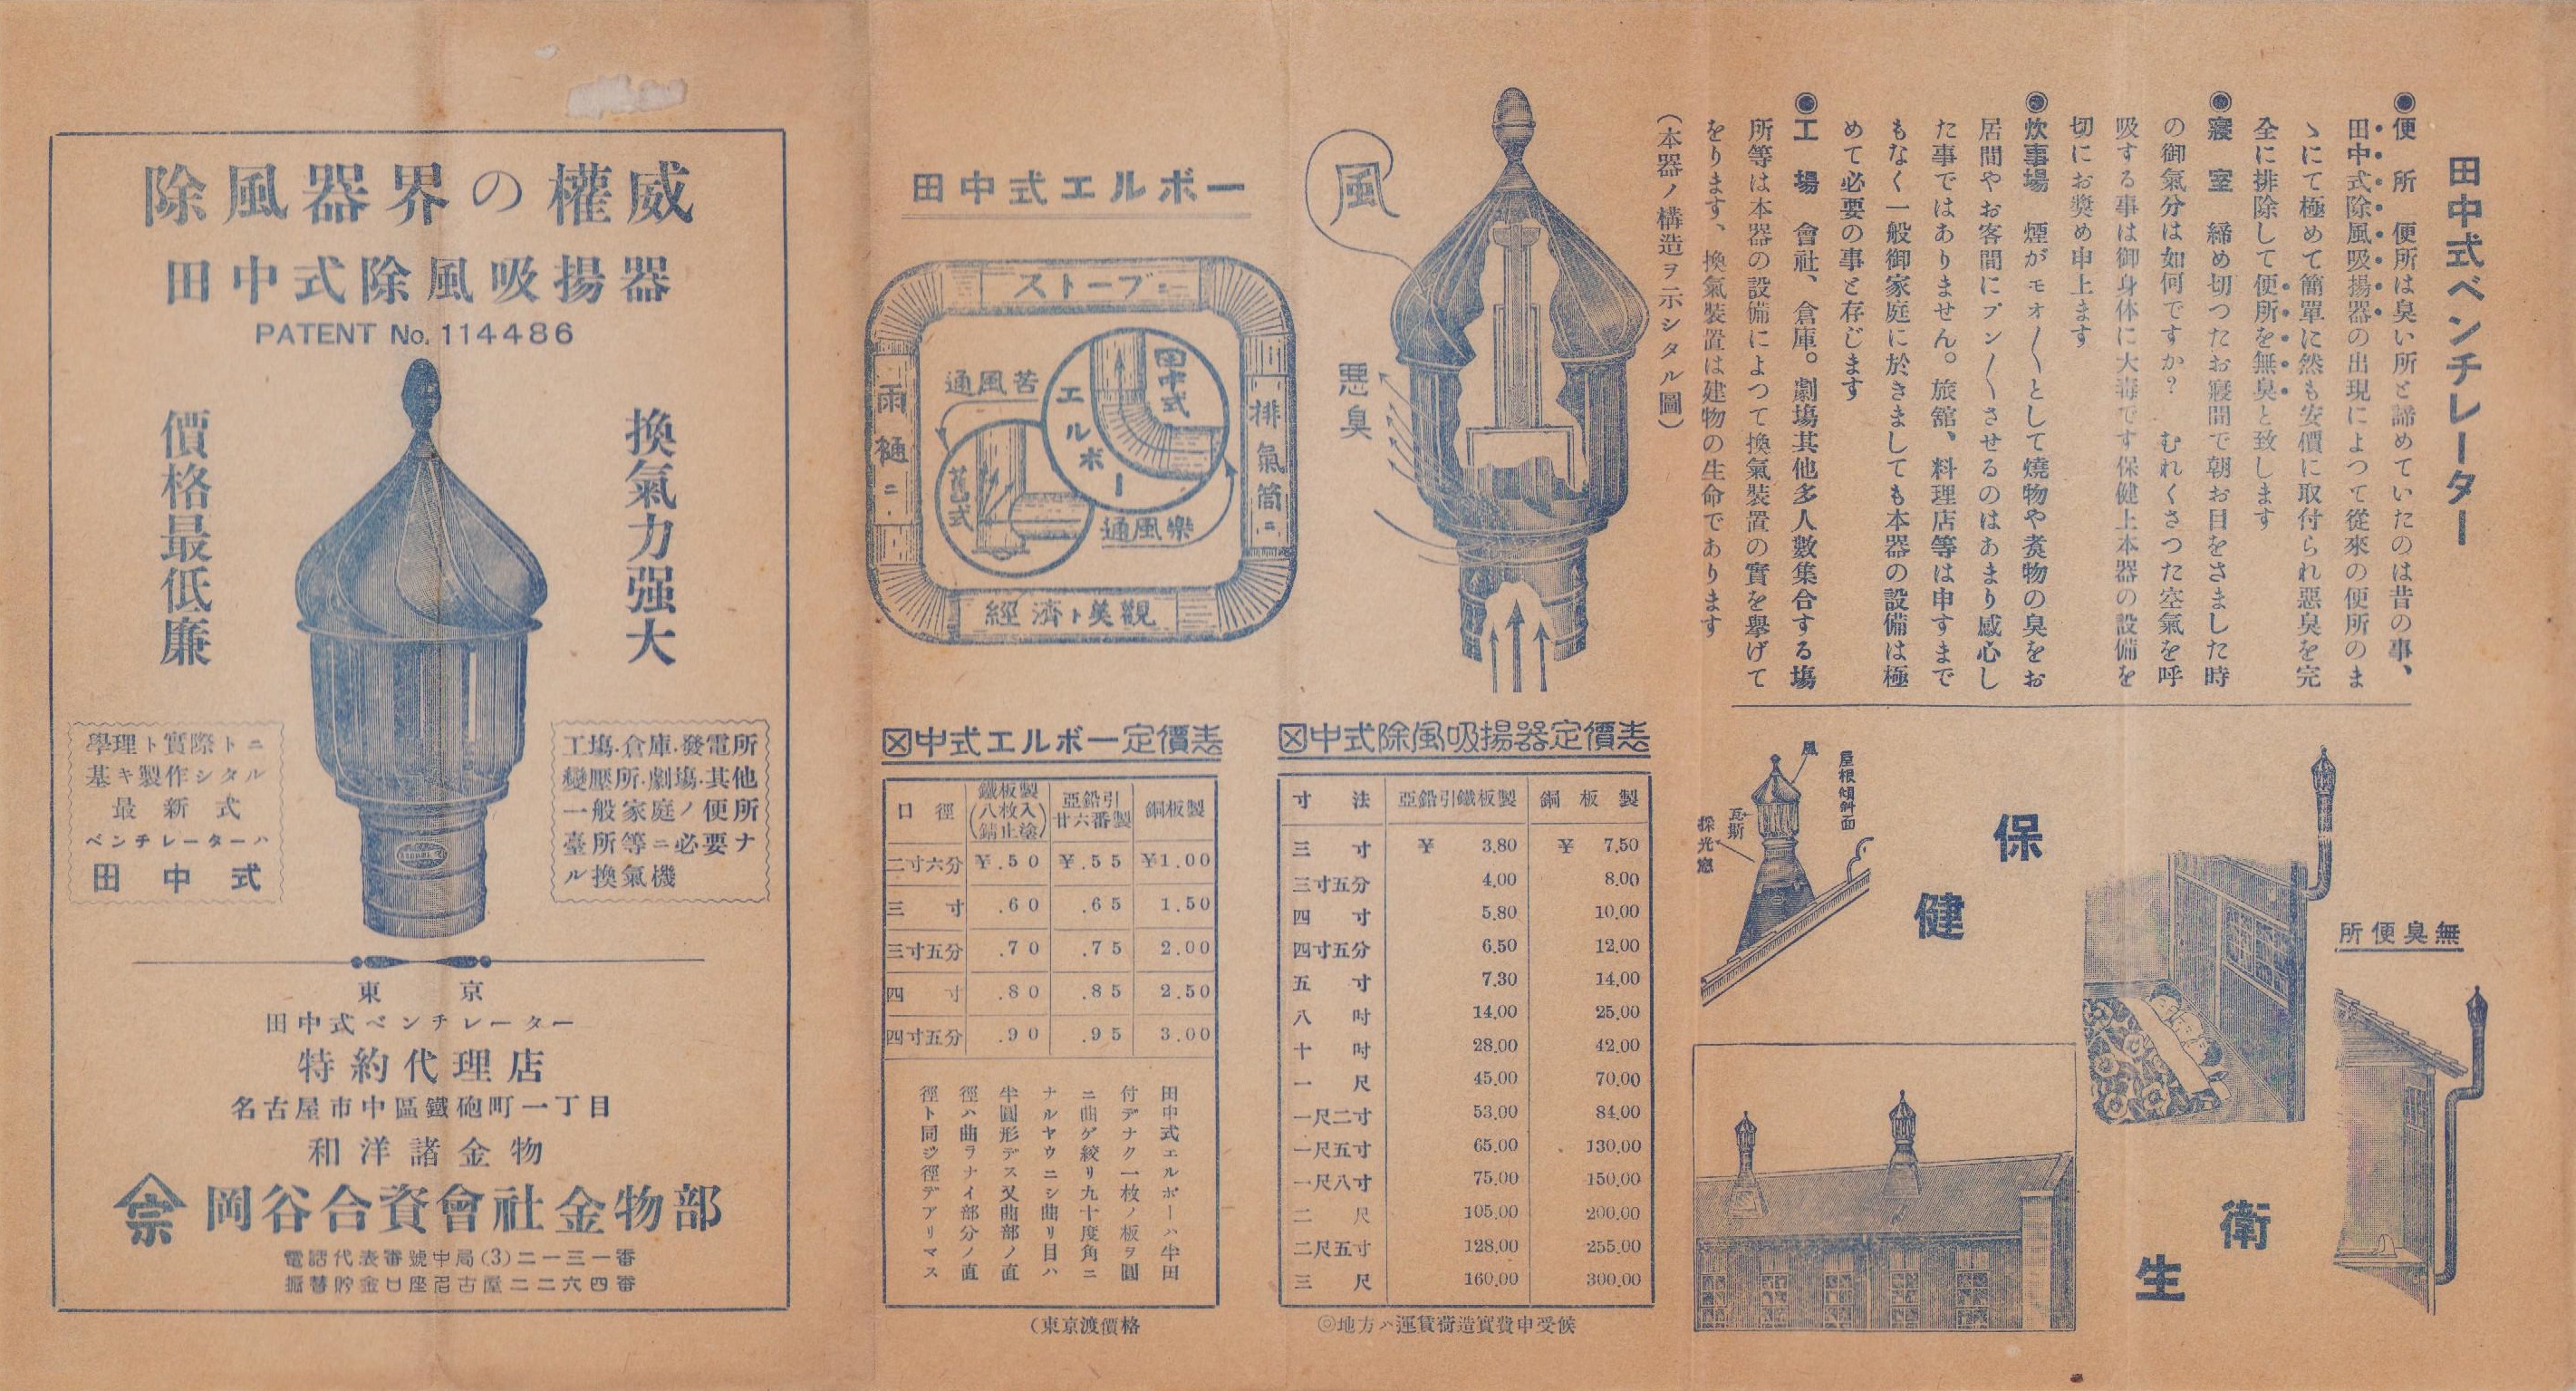 除風器界の權威
田中式除風吸揚器
PATENT No. 114486
換氣力强大
價格最低廉
學理ト實際トニ
基キ製作シタル
最新式
ベンチレーターハ
田中式
工塲·倉庫·發電所
變壓所·劇塲·其他
一般家庭ノ便所
臺所等ニ必要ナ
ル換氣機
東京
田中式ベンチレーター
特約代理店
名古屋市中區鐵砲町一丁目
和洋諸金物
宗
岡谷合資會社金物部
電話代表番號中局(3)二一三一番
振替貯金口座名古屋二二六四番
田中式エルボー
ストーブニ
排氣筒ニ
雨樋ニ
經濟ト美觀
通風苦
舊式
田中式
エルボー
通風樂
風
悪臭
(本器ノ構造ヲ示シタル圖)
田中式ベンチレーター
◉便所 便所は臭い所と諦めていたのは昔の事、
田中式除風吸揚器の出現によつて從來の便所のま
ゝにて極めて簡單に然も安價に取付られ悪臭を完
全に排除して便所を無臭と致します
◉寢室 締め切つたお寢間で朝お目をさました時
の御氣分は如何ですか? むれくさつた空氣を呼
吸する事は御身体に大毒です保健上本器の設備を
切にお奬め申上ます
◉炊事場 煙がモオ〱として燒物や煮物の臭をお
居間やお客間にプン〱させるのはあまり感心し
た事ではありません。旅舘、料理店等は申すまで
もなく一般御家庭に於きましても本器の設備は極
めて必要の事と存じます
◉工場 會社、倉庫。劇塲其他多人數集合する塲
所等は本器の設備によつて換氣裝置の實を擧げて
をります、換氣裝置は建物の生命であります
田中式エルボー定價表
口徑 鐵板製(八枚入錆止塗) 亞鉛引廿六番製 銅板製
二寸六分 ¥.50 ¥.55 ¥1.00
三寸 .60 .65 1.50
三寸五分 .70 .75 2.00
四寸 .80 .85 2.50
四寸五分 .90 .95 3.00
田中式エルボーハ半田
付デナク一枚ノ板ヲ圓
ニ曲ゲ絞リ九十度角ニ
ナルヤウニシ曲リ目ハ
半圓形デス又曲部ノ直
徑ハ曲ラナイ部分ノ直
徑ト同ジ徑デアリマス
(東京渡價格
田中式除風吸揚器定價表
寸法 亞鉛引鐵板製 銅板製
三寸 ¥ 3.80 ¥ 7.50
三寸五分 4.00 8.00
四寸 5.80 10.00
四寸五分 6.50 12.00
五寸 7.30 14.00
八吋 14.00 25.00
十吋 28.00 42.00
一尺 45.00 70.00
一尺二寸 53.00 84.00
一尺五寸 65.00 130.00
一尺八寸 75.00 150.00
二尺 105.00 200.00
二尺五寸 128.00 255.00
三尺 160.00 300.00
◎地方ハ運賃荷造實費申受候
風
屋根傾斜面
瓦斯
採光窓
保健
衛生
無臭便所